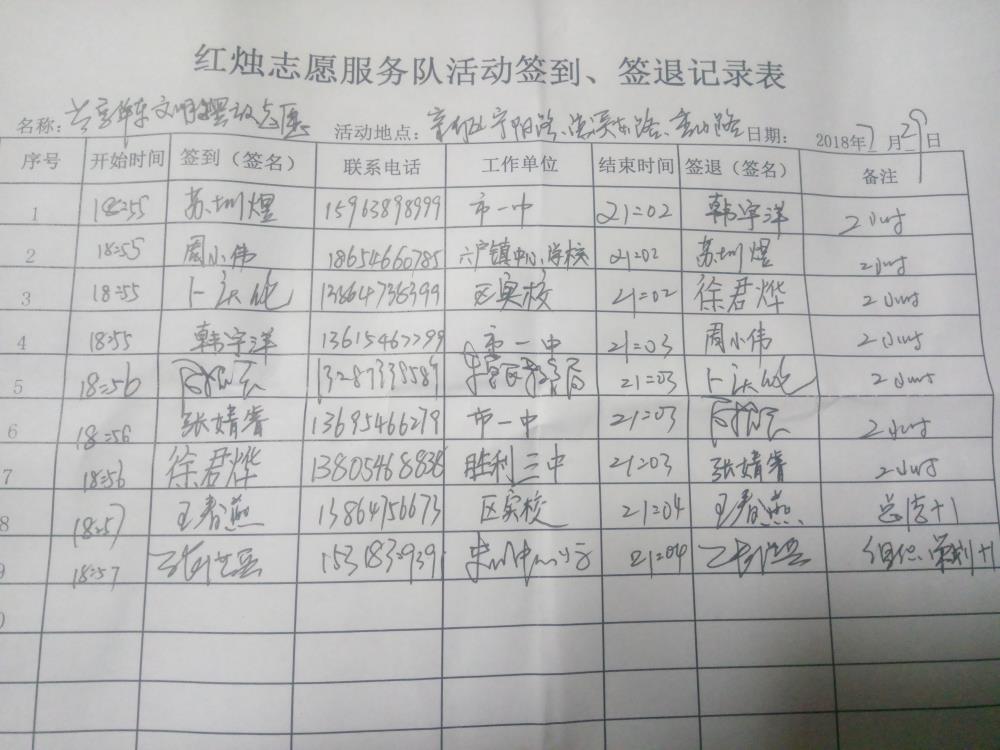 红烛志愿服务队活动签到、签退记录表
名称: 活动地点: 日期: 2018年7月29日
序号 开始时间 签到（签名） 联系电话 工作单位 结束时间 签退（签名） 备注
1 18:55 苏圳煜 15963898999 市一中 21:02 韩宇洋 2小时
2 18:55 周小伟 18654660785 六户镇中心学校 21:02 苏圳煜 2小时
3 18:55 13364736399 区实校 21:02 徐君烨 2小时
4 18:55 韩宇洋 13615467299 市一中 21:03 周小伟 2小时
5 18:56 13287339589 21:03 2小时
6 18:56 张婧睿 13695466279 市一中 21:03 2小时
7 18:56 徐君烨 13805468838 胜利三中 21:03 张婧睿 2小时
8 18:57 王春燕 13864756673 区实校 21:04 王春燕 总结+1
9 18:57 21:04 组织、策划+1